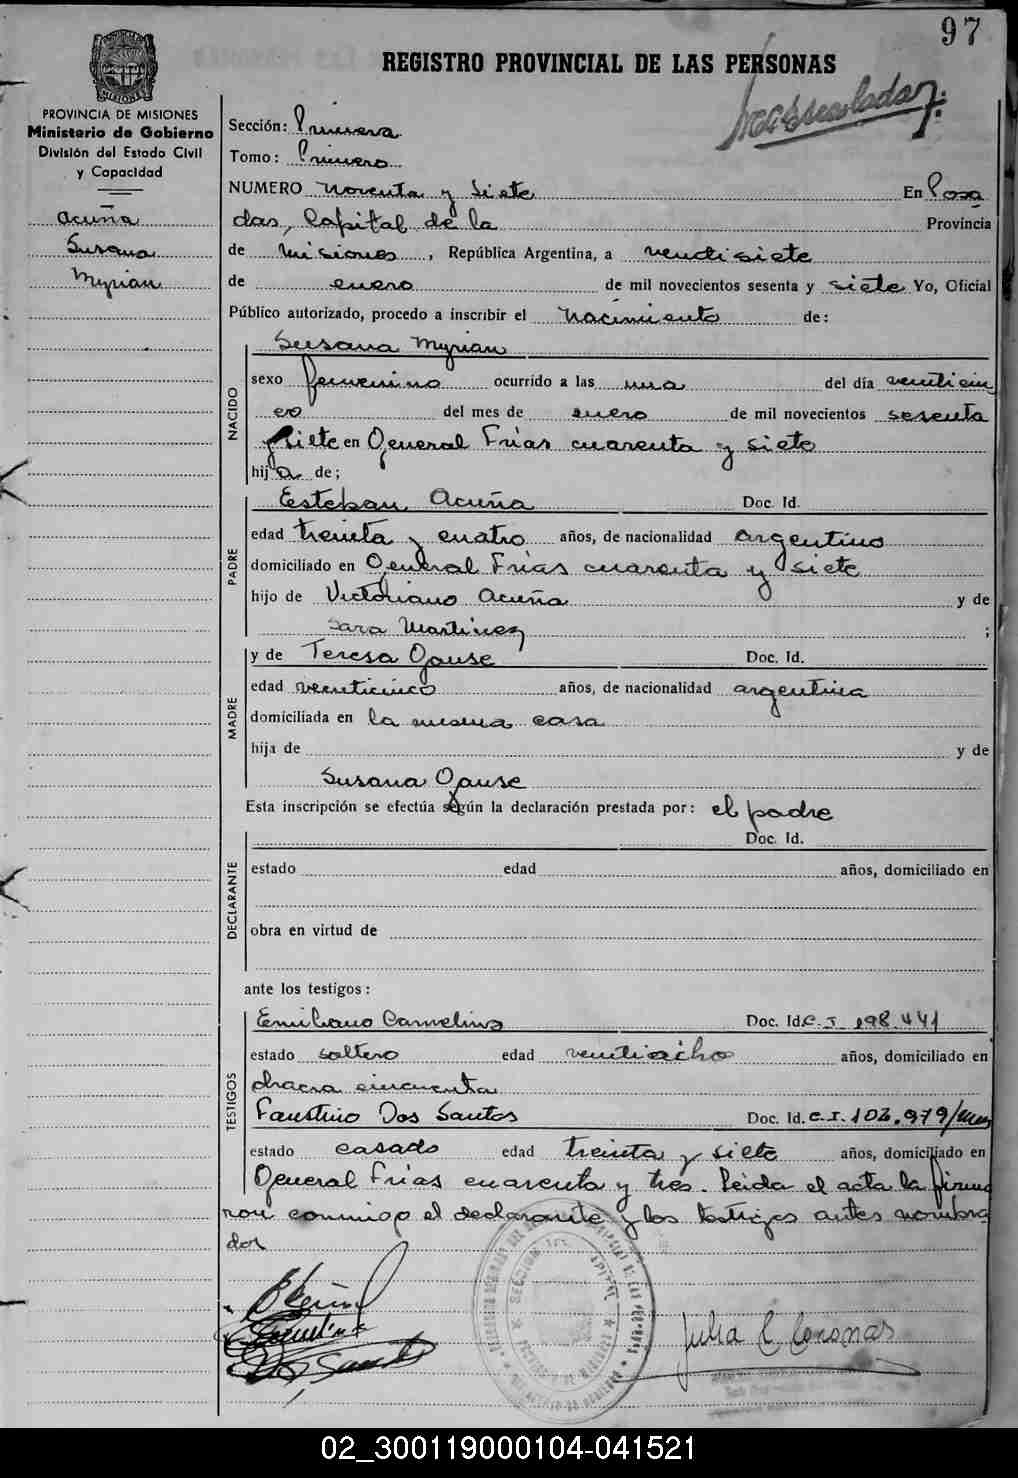 97
REGISTRO PROVINCIAL DE LAS PERSONAS
MISIONES
PROVINCIA DE MISIONES
Ministerio de Gobierno
División del Estado Civil
y Capacidad
Acuña
Susana
Myrian
Sección: Primera
Tomo: Primero
NUMERO Noventa y Siete En Posa
das, Capital de la Provincia
de Misiones, República Argentina, a veintisiete
de enero de mil novecientos sesenta y siete Yo, Oficial
Público autorizado, procedo a inscribir el nacimiento de:
NACIDO
Susana Myrian
sexo femenino ocurrido a las una del día veinticin
co del mes de enero de mil novecientos sesenta
y siete en General Frías cuarenta y siete
hija de;
PADRE
Esteban Acuña Doc. Id.
edad treinta y cuatro años, de nacionalidad argentino
domiciliado en General Frías cuarenta y siete
hijo de Victoriano Acuña y de
Sara Martinez ;
MADRE
y de Teresa Ojause Doc. Id.
edad veinticinco años, de nacionalidad argentina
domiciliada en la misma casa
hija de y de
Susana Ojause
Esta inscripción se efectúa según la declaración prestada por: el padre
DECLARANTE
Doc. Id.
estado edad años, domiciliado en
obra en virtud de
ante los testigos:
TESTIGOS
Emiliano Camelino Doc. Id. C. I. 198.441
estado soltero edad veintiocho años, domiciliado en
chacra cincuenta
Faustino Dos Santos Doc. Id. C. I. 102.979/
estado casado edad treinta y siete años, domiciliado en
General Frías cuarenta y tres. Leida el acta la firma
ron conmigo el declarante y los testigos antes nombra
dos
Julia C Coronas
02_300119000104-041521